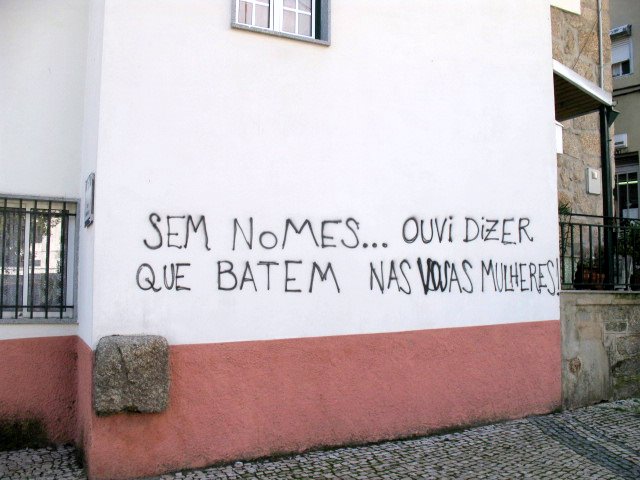 SEM NOMES... OUVI DIZER
QUE BATEM NAS MULHERES!